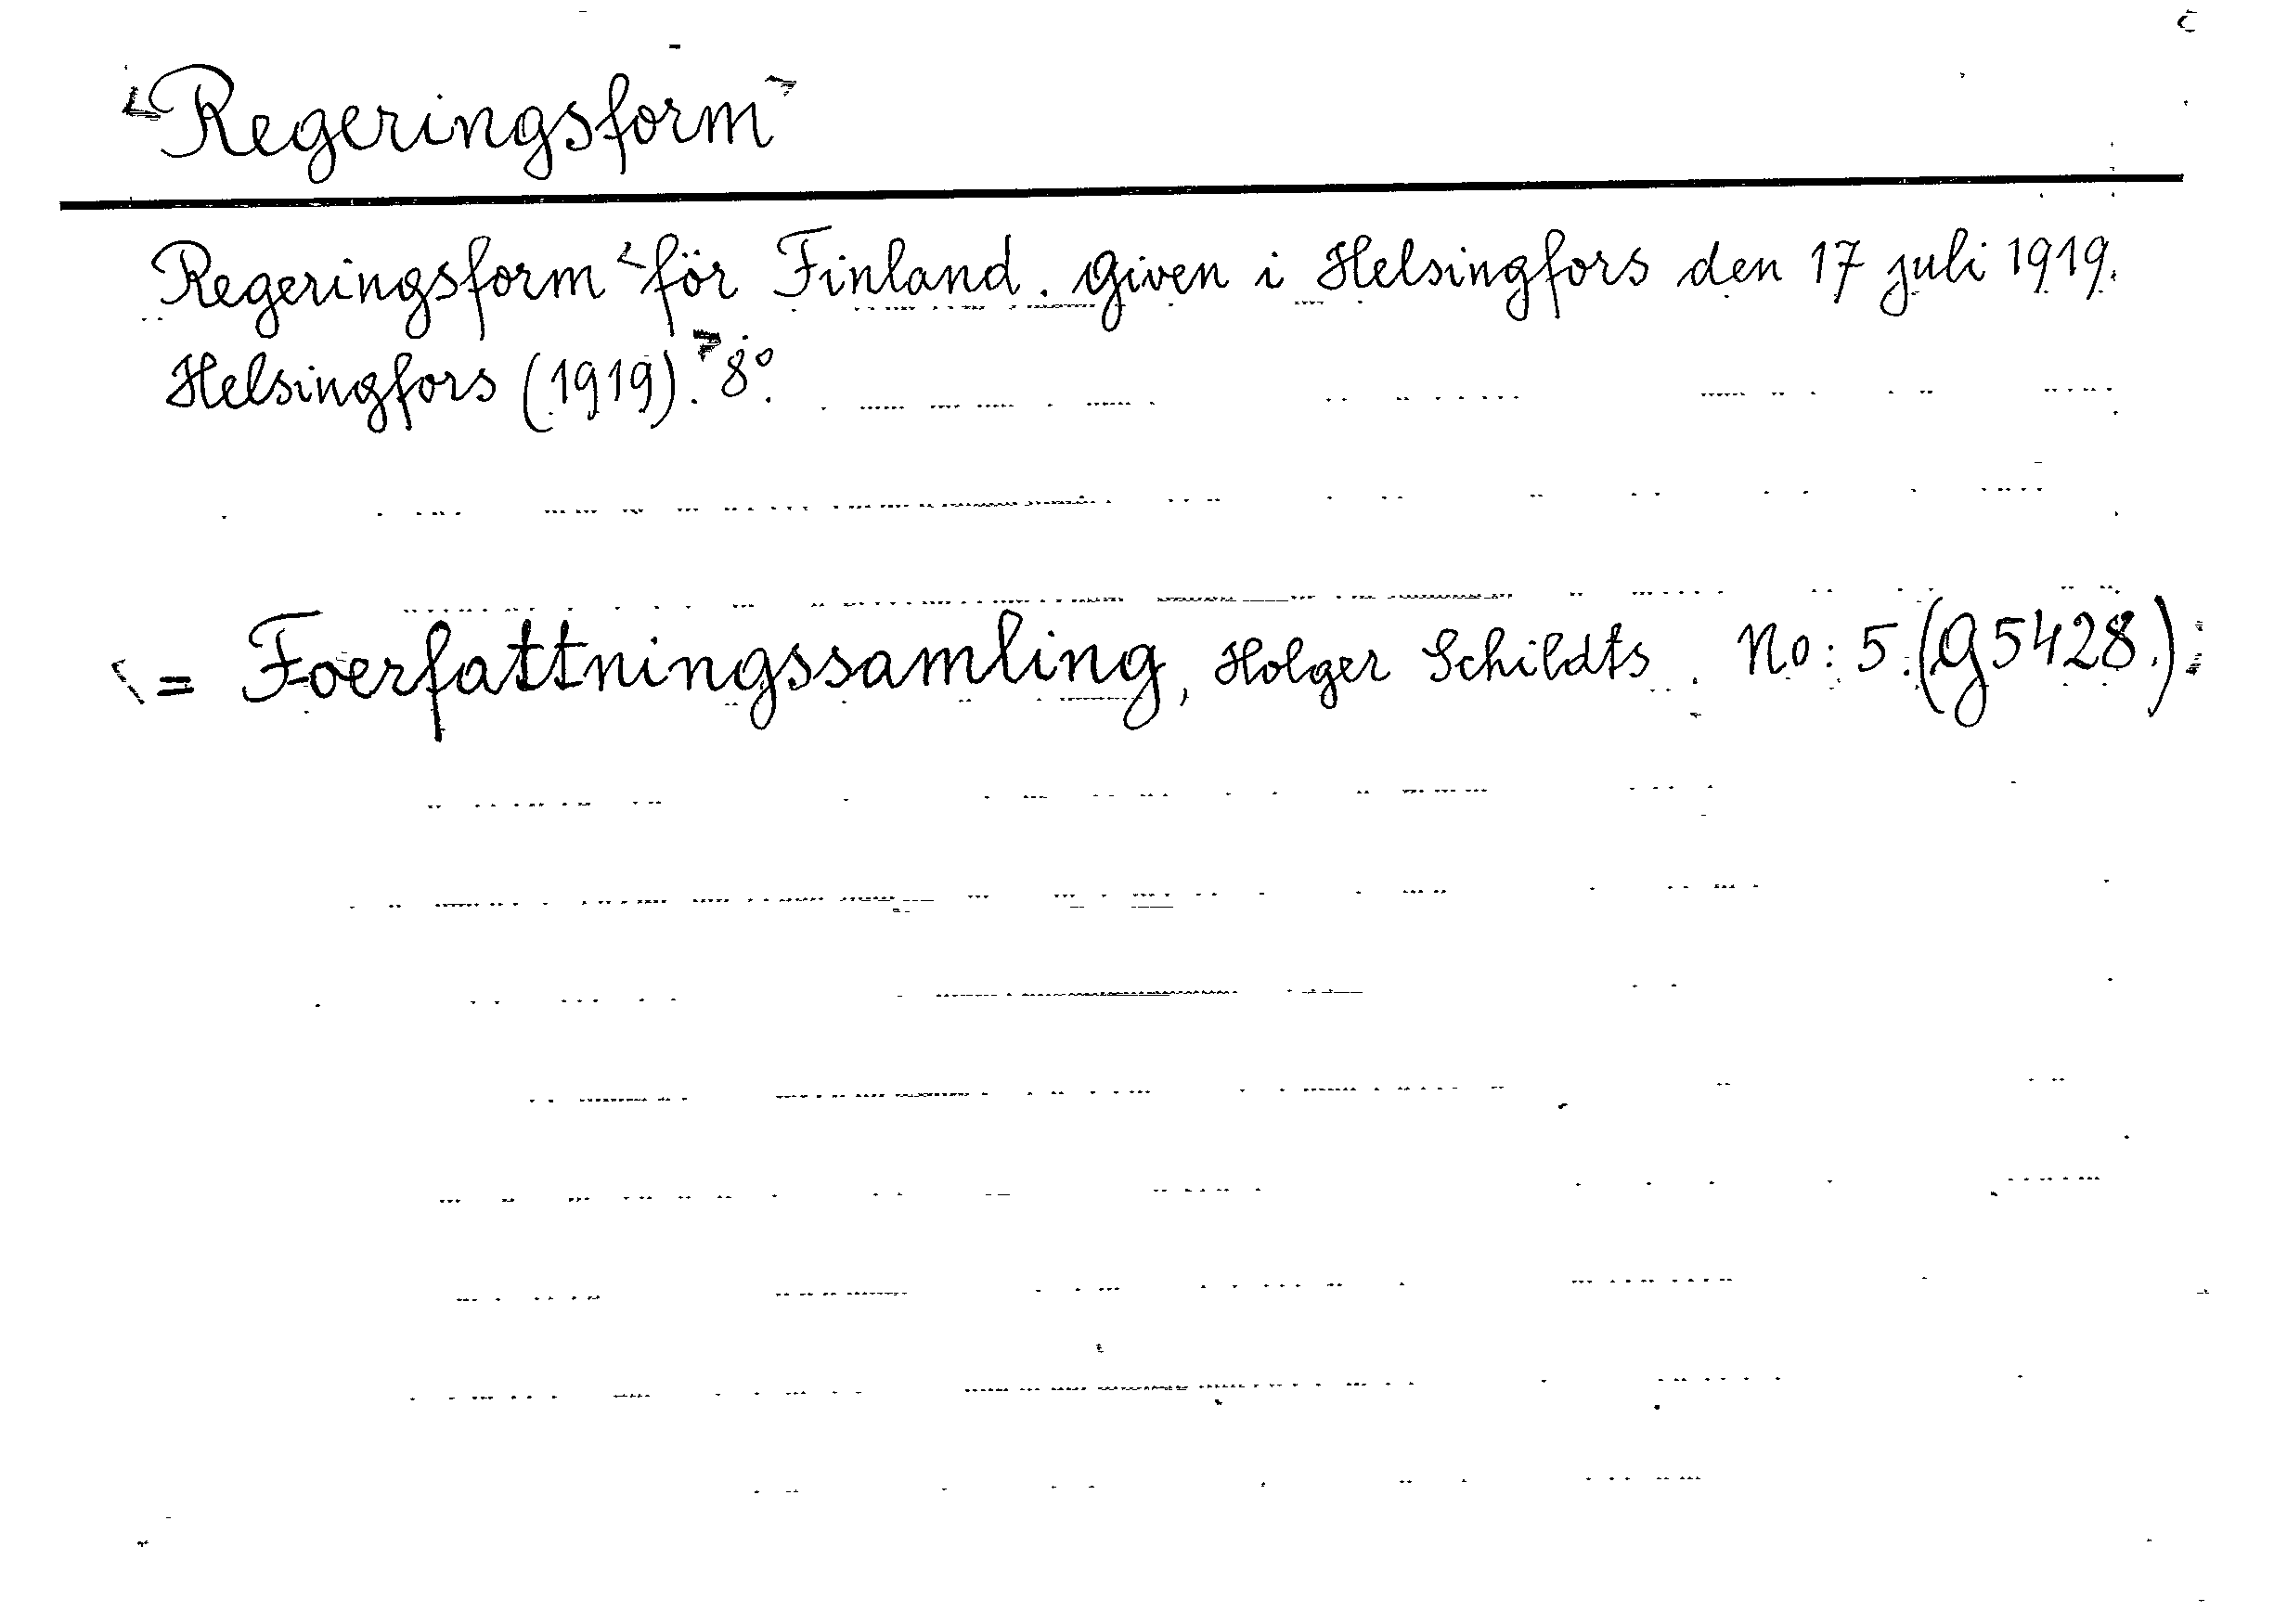 <Regeringsform>
Regeringsform <för Finland. Given i Helsingfors den 17 juli 1919.
Helsingfors (1919).> 8:o.
= Foerfattningssamling, Holger Schildts. No: 5. (G5428.)